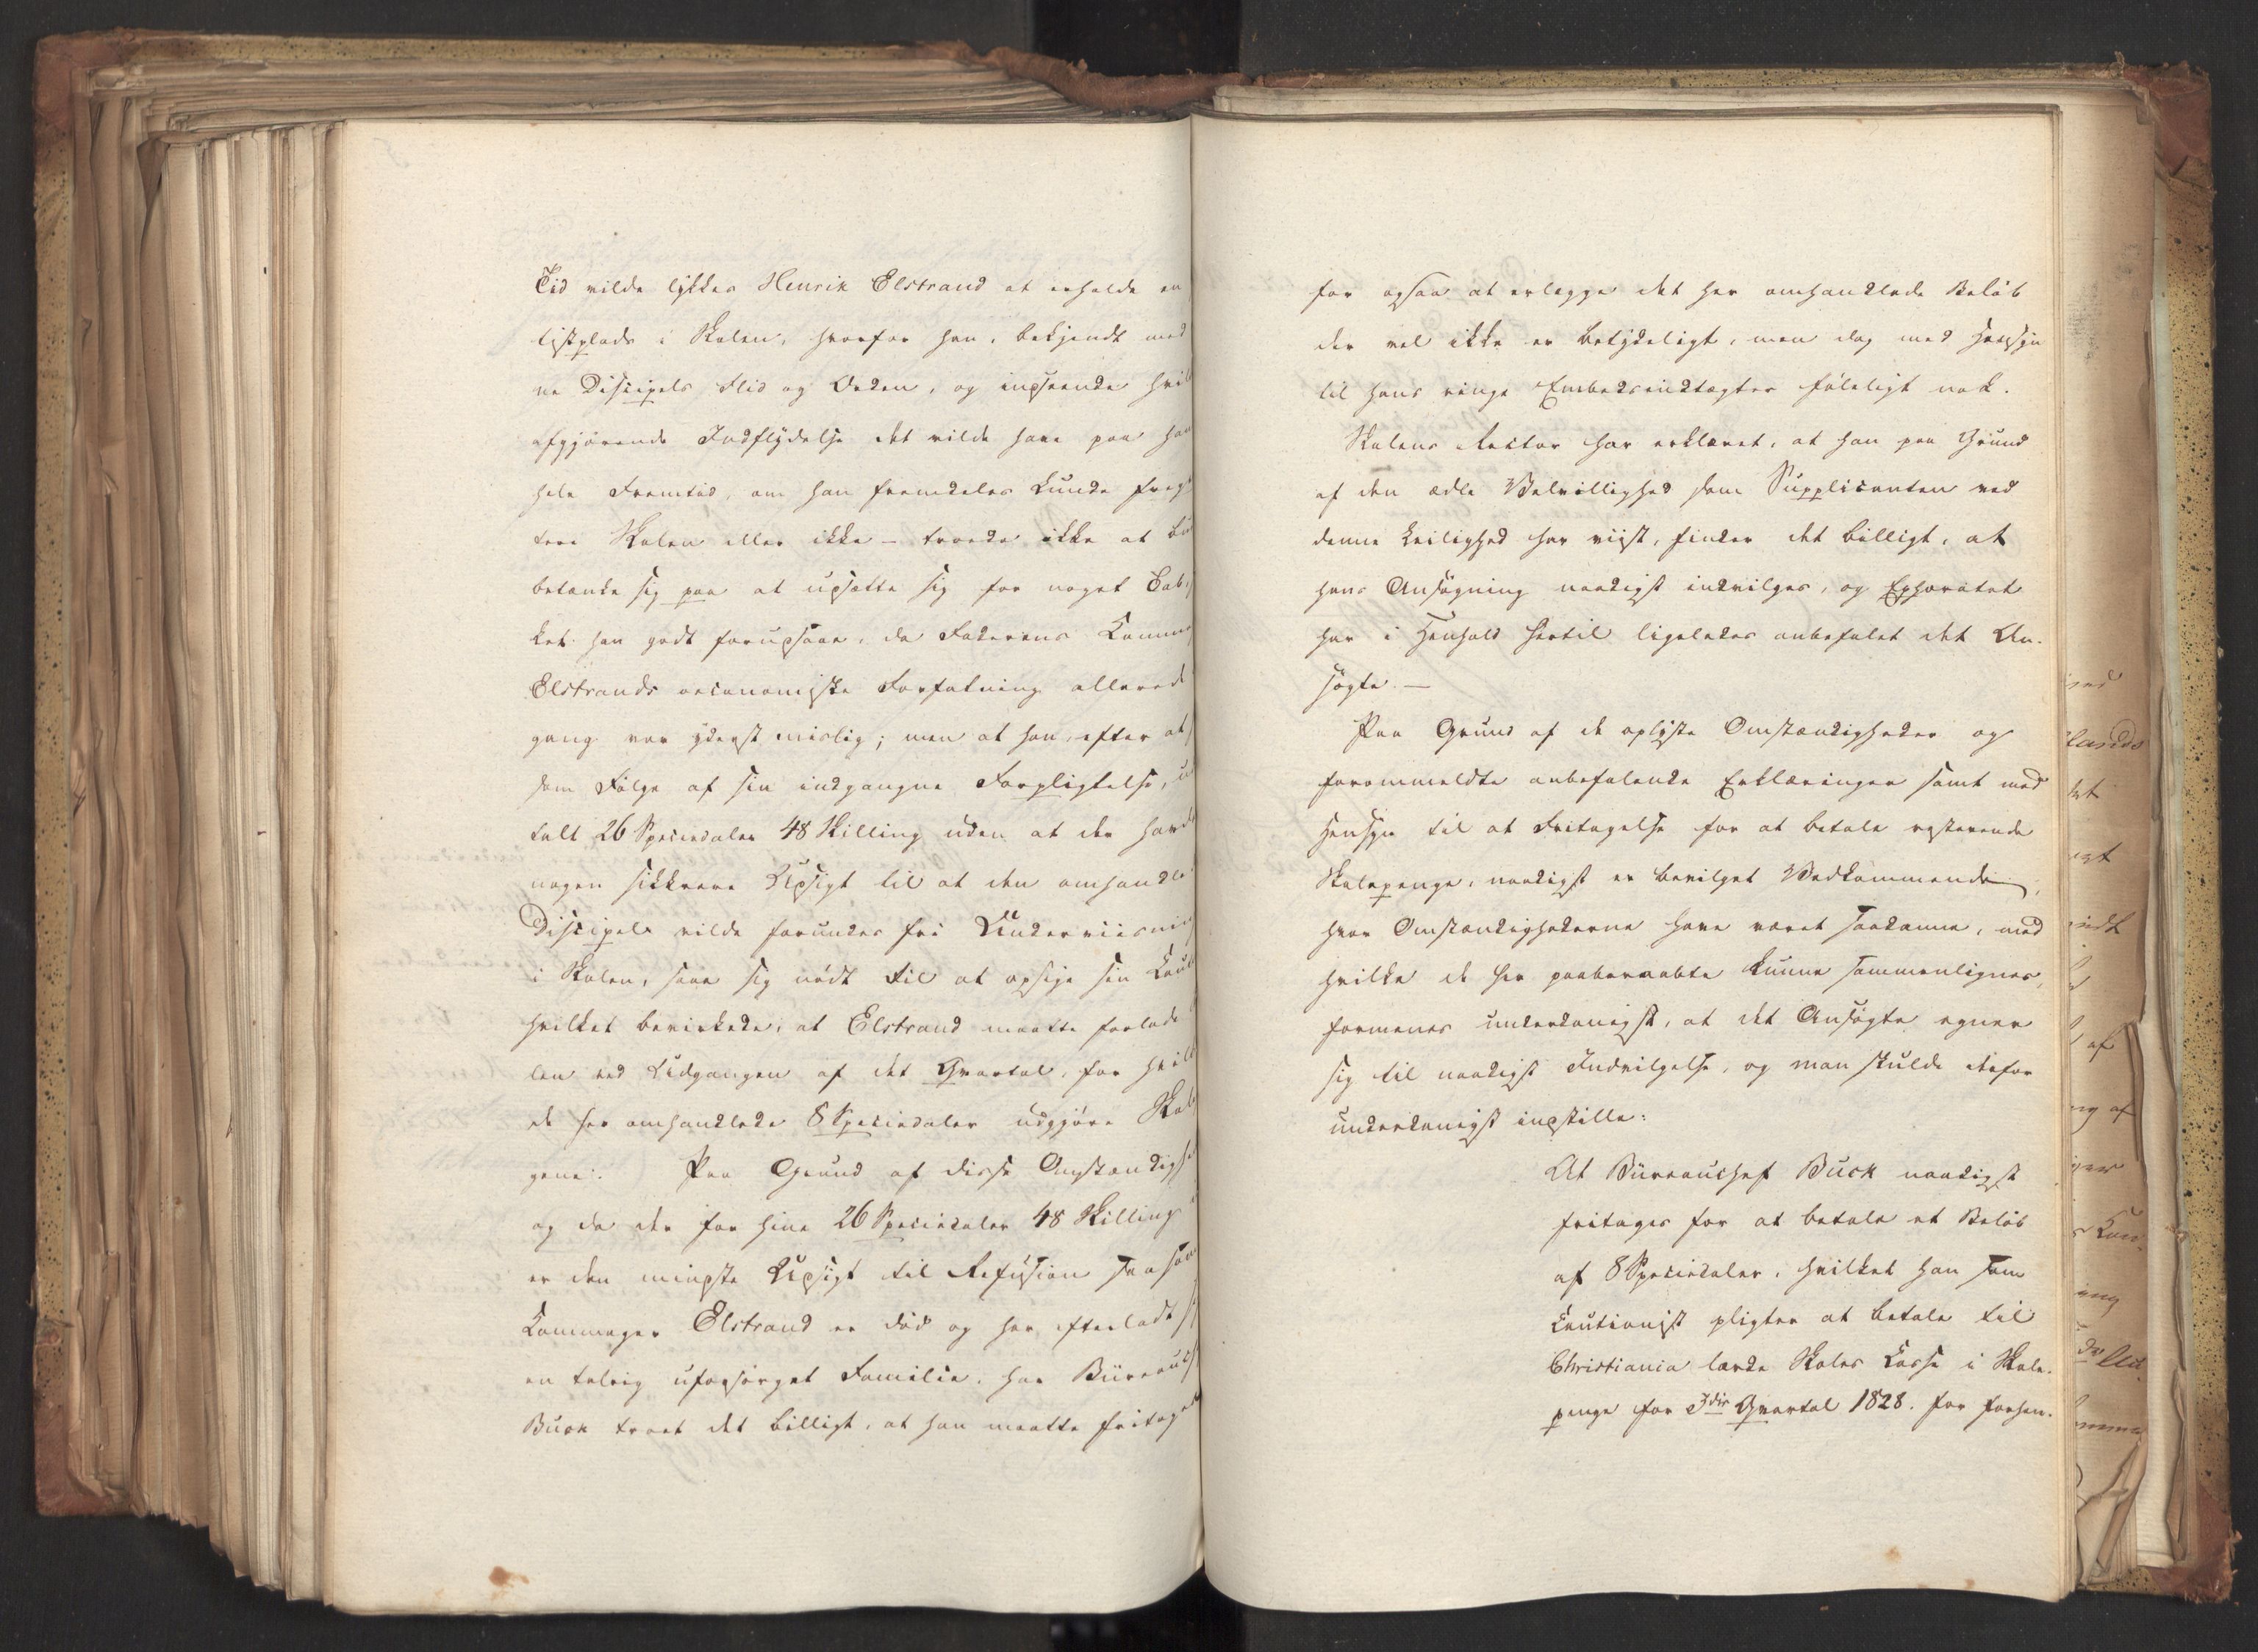 Tid vilde lykkes Henrik Elstrand at erholde en
listplads i Skolen, hvorfor han, bekjendt med
ne Discipels Flid og Orden, og indseende hvil
afgjørende Indflydelse det vilde have paa han
hele Fremtid, om han fremdeles kunde freqv
tere Skolen eller ikke – troede ikke at bu
betænke sig paa at udsætte sig for noget Tab,
ket han godt forudsaae, da Faderens Kamm
Elstrands oeconomiske Forfatning allerede
gang var yderst mislig; men at han, efter at
som Følge af sin indgangne Forpligtelse, u
talt 26 Speciedaler 48 Skilling uden at der havde
nogen sikkrere Udsigt til at den omhandle
Discipel vilde forundes fri Underviisning
i Skolen, saae sig nødt til at opsige sin Caut
hvilket bevirkede, at Elstrand maatte forlade
len ved Udgangen af det Qvartal, for hvilk
de her omhandlede 8 Speciedaler udgjøre Skol
gene. Paa Grund af disse Omstændighe
og da der for hine 26 Speciedaler 48 Skilling
er den mindste Udsigt til Refusion saasom
Kammager Elstrand er død og har efterladt s
en talrig uforsørget Familie, har Büreauch
Buck troet det billigt, at han maatte fritage
for ogsaa at erlægge det her omhandlede Beløb
der vel ikke er betydeligt, men dog med Hensyn
til hans ringe Embedsindtægter føleligt nok.
Skolens Rector har erklæret, at han paa Grund
af den ædle Velvillighed som Supplicanten ved
denne Leilighed har viist, finder det billigt, at
hans Ansøgning naadigst indvilges, og Ephoratet
har i Henhold hertil ligeledes anbefalet det An-
søgte. —
Paa Grund af de oplyste Omstændigheder og
forommeldte anbefalende Erklæringer samt med
Hensyn til at Fritagelse for at betale resterende
Skolepenge, naadigst er bevilget Vedkommende,
hvor Omstændighederne have været saadanne, med
hvilke de her paaberaabte kunne sammenlignes,
formenes underdanigst, at det Ansøgte egner
sig til naadigst Indvilgelse, og man skulde derfor
underdanigst indstille:
At Büreauchef Buck naadigst
fritages for at betale et Beløb
af 8 Speciedaler, hvilket han som
Cautionist pligter at betale til
Christiania lærde Skoles Casse i Skole-
penge for 3die Qvartal 1828. for forhen-